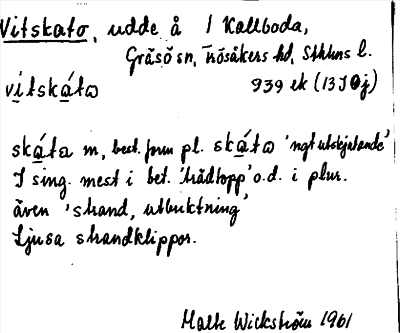 Vitskato, udde å 1 Kallboda,
Gräsö sn, Frösåkers hd, Sthlms l.
vítskátω 939 ek (13I 0j)
skáta m, best. form pl. skátω 'ngt utskjutande'
I sing. mest i bet. 'trädtopp' o.d. i plur.
även 'strand, utbuktning'
Ljusa strandklippor.
Malte Wickström 1961